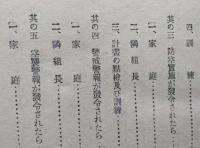 四、訓練
其の三 防空實施が發令されたら
一、家庭
二、隣組長
三、計畫の點檢及び訓練
其の四 警戒警報が發令されたら
一、家庭
二、隣組長
其の五 空襲警報が發令されたら
一、家庭